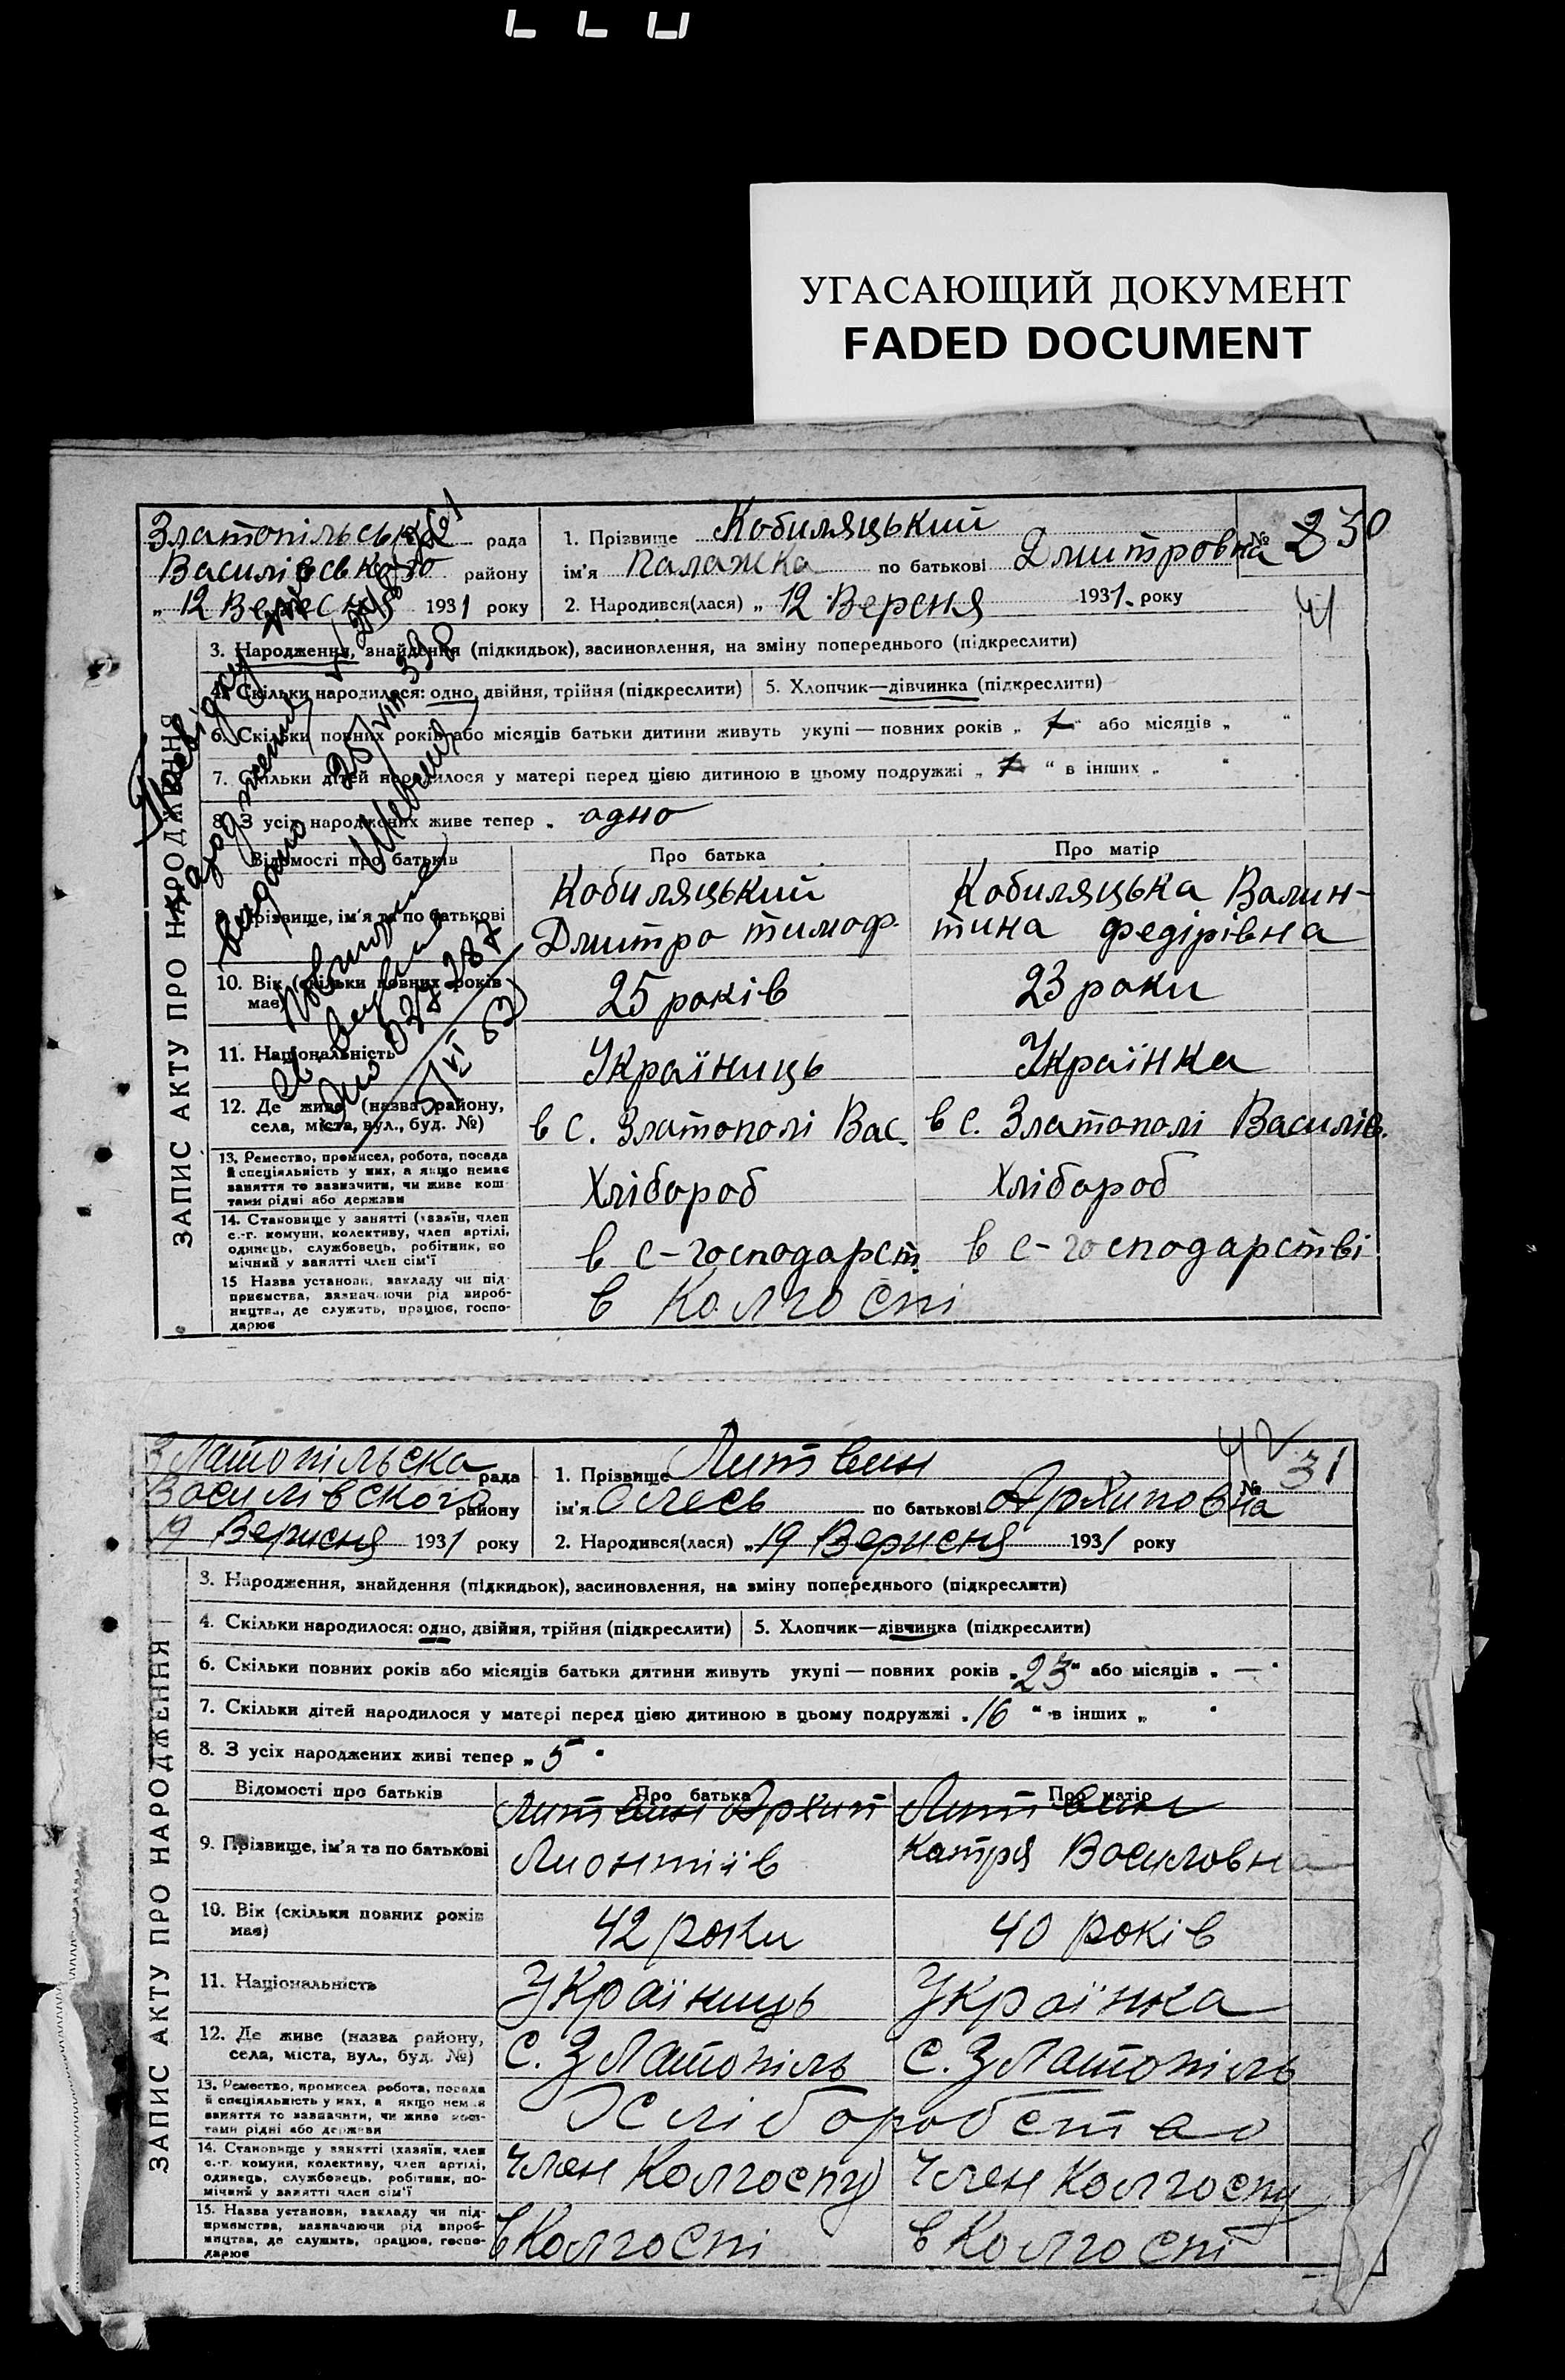 УГАСАЮЩИЙ ДОКУМЕНТ
FADED DOCUMENT
ЗАПИС АКТУ ПРО НАРОДЖЕННЯ
Златопільська рада
Василівського району
„ 12 Верес 1931 року
1. Прізвище Кобиляцький
№ 30
ім'я Палажка по батькові Дмитровна
2. Народився(лася) „ 12 Вереня 1931. року
41
3. Народження, знайдення (підкидьок), засиновлення, на зміну попереднього (підкреслити)
4. Скільки народилося: одно, двійня, трійня (підкреслити) 5. Хлопчик—дівчинка (підкреслити)
6. Скільки повних років або місяців батьки дитини живуть укупі — повних років „ 1 “ або місяців „ “
7. Скільки дітей народилося у матері перед цією дитиною в цьому подружжі „ “ в інших „ “
8. З усіх народжених живе тепер „ одно
Відомості про батьків Про батька Про матір
9. Прізвище, ім'я та по батькові
Кобиляцький Дмитро тимоф.
Кобиляцька Валин-
тина федірівна
10. Вік (скільки повних років має) 25 років 23 роки
11. Національність Україниць Українка
12. Де живе (назва району, села, міста, вул., буд. №)
в с. Златополі Вас. в с. Златополі Василів.
13. Ремество, промисел, робота, посада
й спеціяльність у них, а якщо немає
заняття то зазначити, чи живе кош-
тами рідні або держави
Хлібороб Хлібороб
14. Становище у занятті (хазяїн, член
с.-г. комуни, колективу, член артілі,
одинець, службовець, робітник, по
мічний у занятті член сім'ї
в с-господарст. в с-господарстві
15 Назва установи, закладу чи під-
приємства, зазначаючи рід вироб-
ництва, де служать, працює, госпо-
дарює
в Колгоспі
Выдано
Повторное
287
5/XI
ЗАПИС АКТУ ПРО НАРОДЖЕННЯ
Златопільска рада
Восилівского району
19 Верисня 1931 року
1. Прізвище Литвин
42
№ 31
ім'я Олесь по батькові Архиповна
2. Народився(лася) „ 19 Верисня 1931 року
3. Народження, знайдення (підкидьок), засиновлення, на зміну попереднього (підкреслити)
4. Скільки народилося: одно, двійня, трійня (підкреслити) 5. Хлопчик—дівчинка (підкреслити)
6. Скільки повних років або місяців батьки дитини живуть укупі — повних років „ 23 “ або місяців „ — “
7. Скільки дітей народилося у матері перед цією дитиною в цьому подружжі „ 16 “ в інших „ “
8. З усіх народжених живі тепер „ 5 “
Відомості про батьків Про батька Про матір
9. Прізвище, ім'я та по батькові
Литвин Архип Литвин
Лионтіїв Катря Восиловна
10. Вік (скільки повних років має) 42 роки 40 років
11. Національність Україниць Українка
12. Де живе (назва району, села, міста, вул., буд. №)
с. Златопіль с. Златопіль
13. Ремество, промисел робота, посада
й спеціяльність у них, а якщо немає
заняття то зазначити, чи живе кош-
тами рідні або держави
Хліборобство
14. Становище у занятті (хазяїн, член
с.-г. комуни, колективу, член артілі,
одинець, службовець, робітник, по-
мічний у занятті член сім'ї
Член Колгоспу Член Колгоспу
15. Назва установи, закладу чи під-
приємства, зазначаючи рід вироб-
ництва, де служить, працює, госпо-
дарює
в Колгоспі в Колгоспі